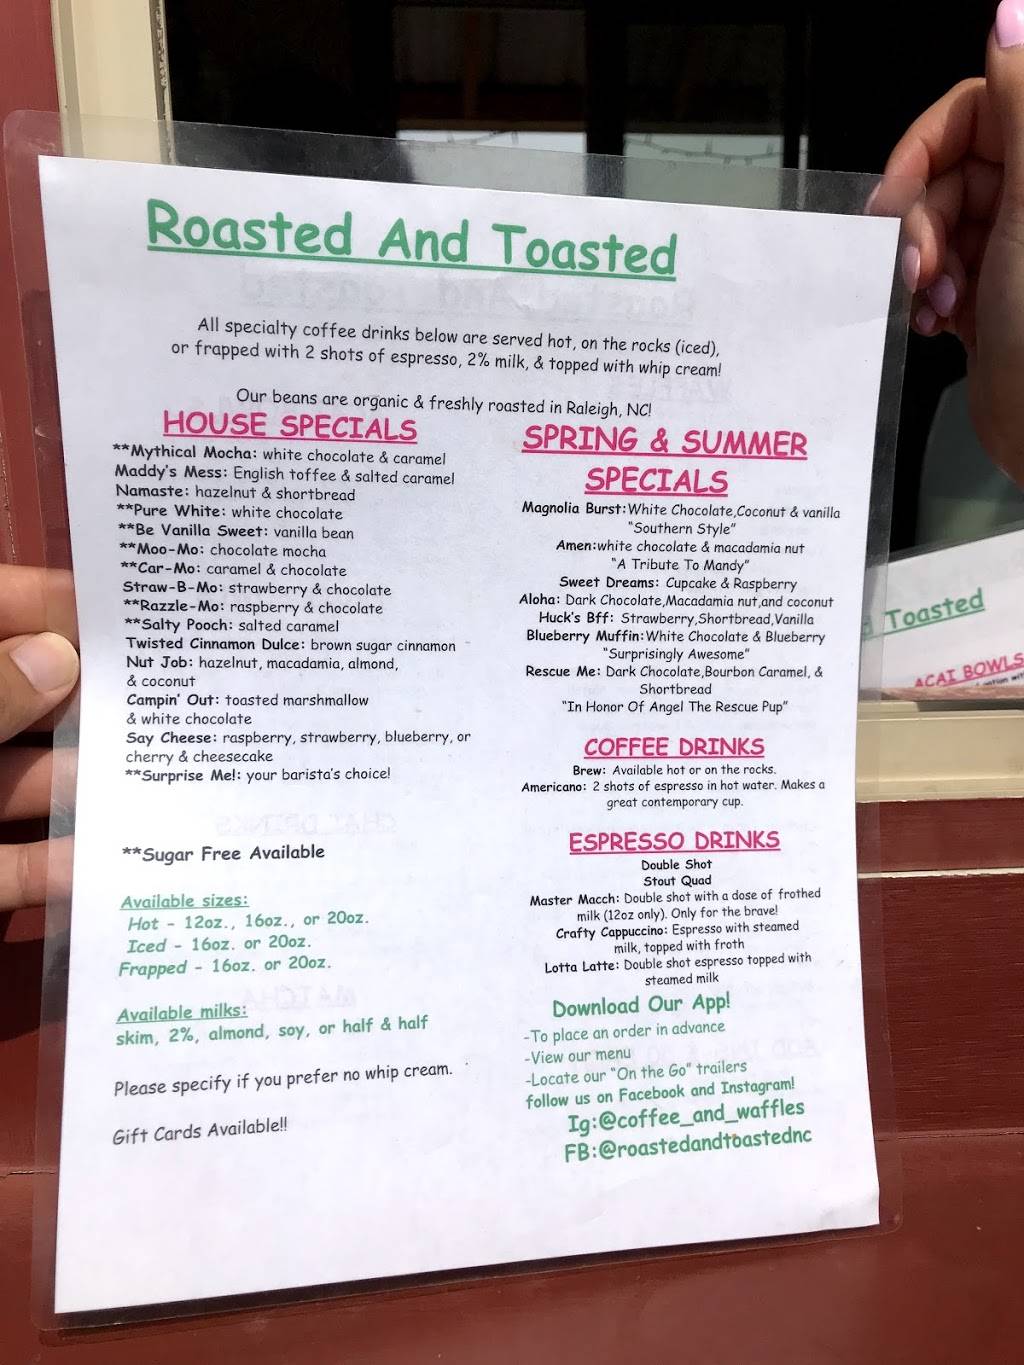 Roasted And Toasted
All specialty coffee drinks below are served hot, on the rocks (iced),
or frapped with 2 shots of espresso, 2% milk, & topped with whip cream!
Our beans are organic & freshly roasted in Raleigh, NC!
HOUSE SPECIALS
**Mythical Mocha: white chocolate & caramel
Maddy's Mess: English toffee & salted caramel
Namaste: hazelnut & shortbread
**Pure White: white chocolate
**Be Vanilla Sweet: vanilla bean
**Moo-Mo: chocolate mocha
**Car-Mo: caramel & chocolate
Straw-B-Mo: strawberry & chocolate
**Razzle-Mo: raspberry & chocolate
**Salty Pooch: salted caramel
Twisted Cinnamon Dulce: brown sugar cinnamon
Nut Job: hazelnut, macadamia, almond,
& coconut
Campin' Out: toasted marshmallow
& white chocolate
Say Cheese: raspberry, strawberry, blueberry, or
cherry & cheesecake
**Surprise Me!: your barista's choice!
**Sugar Free Available
Available sizes:
Hot - 12oz., 16oz., or 20oz.
Iced - 16oz. or 20oz.
Frapped - 16oz. or 20oz.
Available milks:
skim, 2%, almond, soy, or half & half
Please specify if you prefer no whip cream.
Gift Cards Available!!
SPRING & SUMMER
SPECIALS
Magnolia Burst:White Chocolate,Coconut & vanilla
"Southern Style"
Amen:white chocolate & macadamia nut
"A Tribute To Mandy"
Sweet Dreams: Cupcake & Raspberry
Aloha: Dark Chocolate,Macadamia nut,and coconut
Huck's Bff: Strawberry,Shortbread,Vanilla
Blueberry Muffin:White Chocolate & Blueberry
"Surprisingly Awesome"
Rescue Me: Dark Chocolate,Bourbon Caramel, &
Shortbread
"In Honor Of Angel The Rescue Pup"
COFFEE DRINKS
Brew: Available hot or on the rocks.
Americano: 2 shots of espresso in hot water. Makes a
great contemporary cup.
ESPRESSO DRINKS
Double Shot
Stout Quad
Master Macch: Double shot with a dose of frothed
milk (12oz only). Only for the brave!
Crafty Cappuccino: Espresso with steamed
milk, topped with froth
Lotta Latte: Double shot espresso topped with
steamed milk
Download Our App!
-To place an order in advance
-View our menu
-Locate our "On the Go" trailers
follow us on Facebook and Instagram!
Ig:@coffee_and_waffles
FB:@roastedandtoastednc
Toasted
ACAI BOWLS